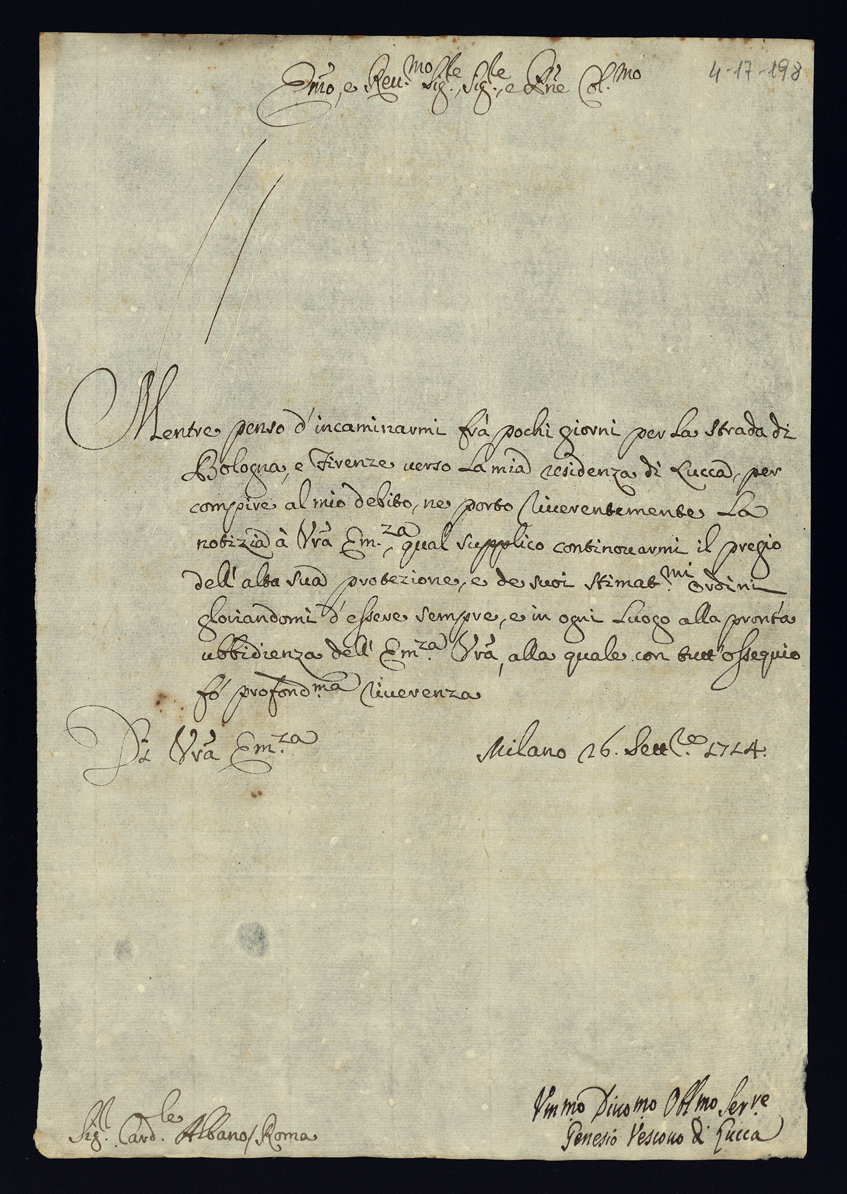 Emo, e Reu.mo Sig.le, Sig.le, e Pne Col.mo
4-17-198
Mentre penso d'incaminarmi frà pochi giorni per la strada di
Bologna, e Firenze verso la mia residenza di Lucca, per
compire al mio debito, ne porto riuerentemente la
notizia à Vrã Em.za, qual supplico continouarmi il pregio
dell'alta sua protezione, e de suoi stimat.mi ordini
gloriandomi d'essere sempre, e in ogni luogo alla pronta
ubbidienza dell'Em.za Vrã, alla quale con tutt'ossequio
fò profond.ma riuerenza
Di Vrã Em.za
Milano 26. Sett.e 1714.
Sig.r Card.le Albano / Roma
Vmmo Diuomo Obblmo Ser.re
Genesio Vescouo di Lucca